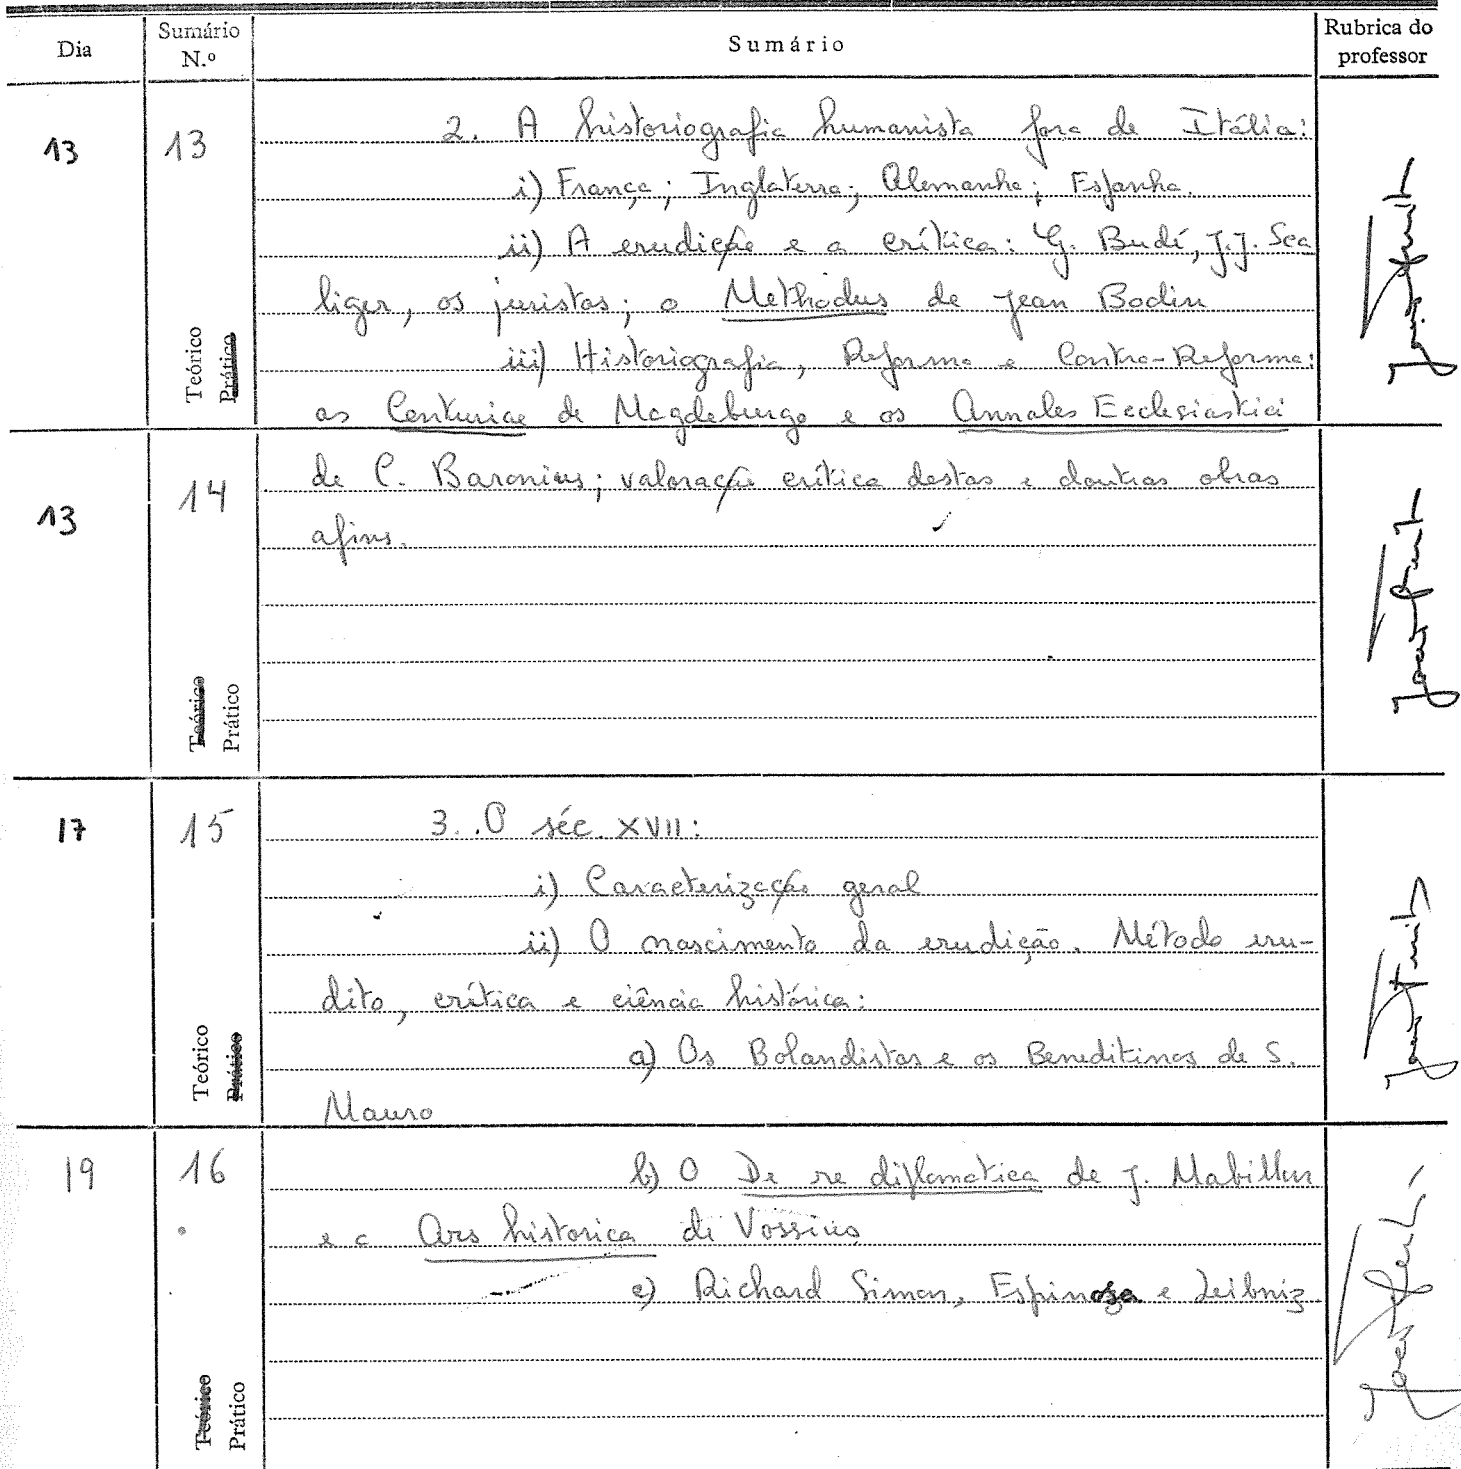 Dia
Sumário N.º
Sumário
Rubrica do professor
13
13
Teórico
Prático
2. A historiografia humanista fora de Itália:
i) França; Inglaterra; Alemanha; Espanha.
ii) A erudição e a crítica: G. Budé, J.J. Sca
liger, os juristas; o Methodus de Jean Bodin
iii) Historiografia, Reforma e Contra-Reforma:
as Centuriae de Magdeburgo e os Annales Ecclesiastici
13
14
Teórico
Prático
de C. Baronius; valoração crítica destas e doutras obras
afins.
17
15
Teórico
Prático
3. O séc. XVII:
i) Caracterização geral
ii) O nascimento da erudição. Método eru-
dito, crítica e ciência histórica:
a) Os Bolandistas e os Beneditinos de S.
Mauro
19
16
Teórico
Prático
b) O De re diplomatica de J. Mabillon
e a Ars historica de Vossius
c) Richard Simon, Espinosa e Leibniz